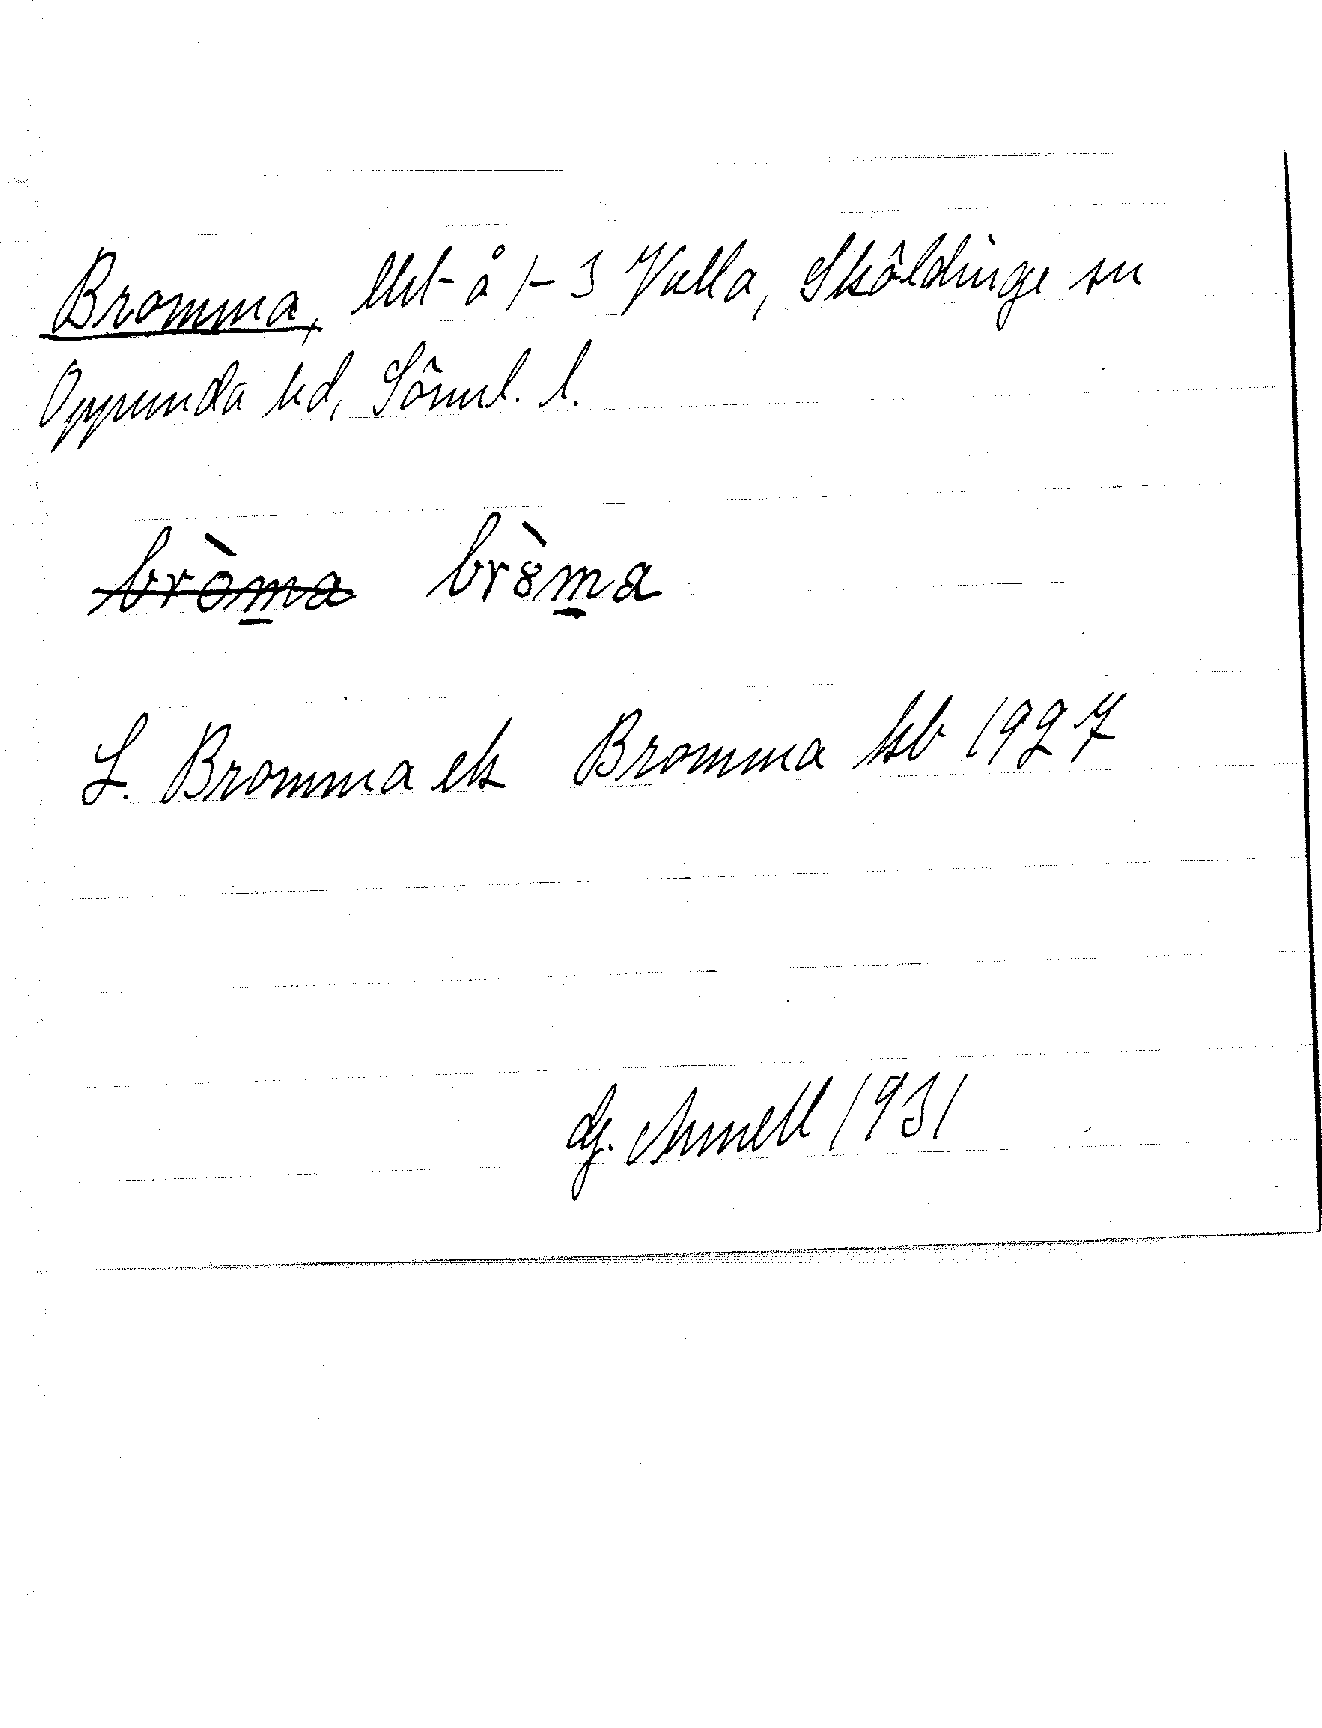 Bromma, lht å 1-3 Valla, Sköldinge sn
Oppunda hd, Söml. l.
bròma brò̀ma
L. Bromma ek Bromma kb 1927
G. Annell 1931